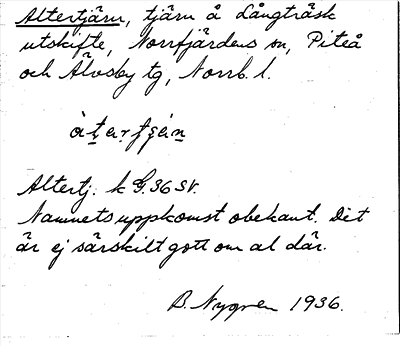 Altertjärn, tjärn å Långträsk
utskifte, Norrfjärdens sn, Piteå
och Älvsby tg, Norrb. l.
Altertj. k G. 36 SV.
Namnets uppkomst obekant. Det
är ej särskilt gott om al där.
B. Nygren 1936.